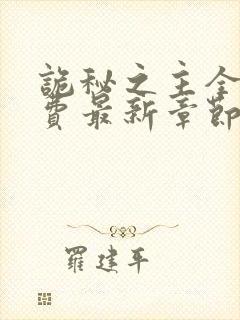 詭秘之主全
費最新章節
羅建平